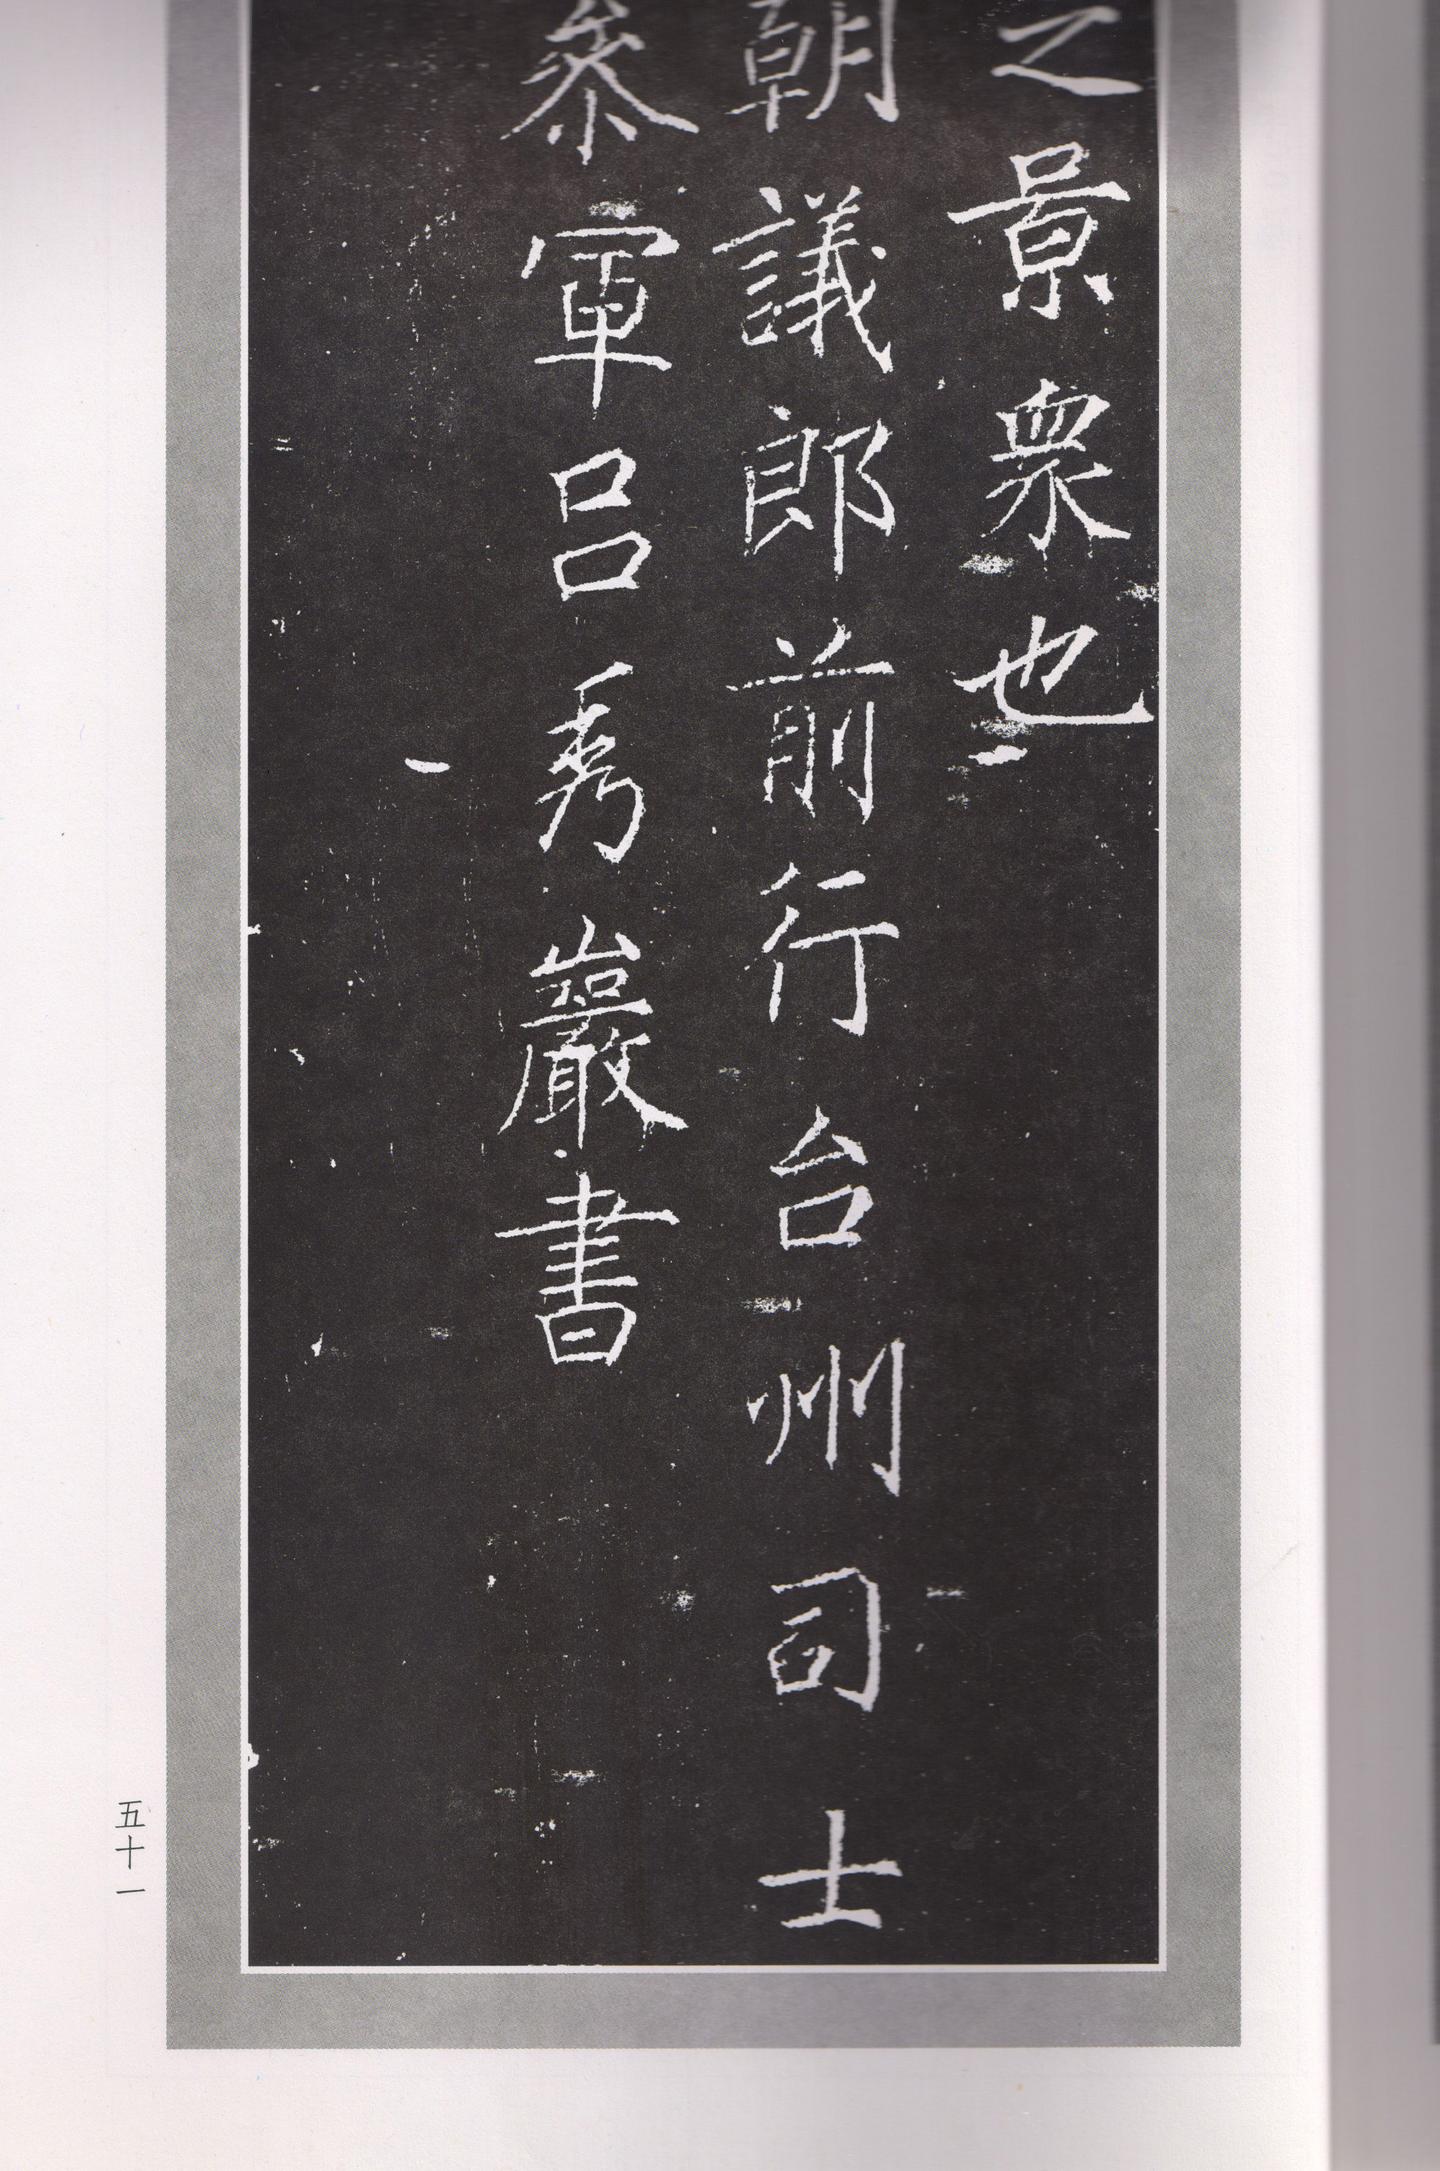 之景衆也
朝議郎前行台州司士
叅軍吕秀巖書
五十一